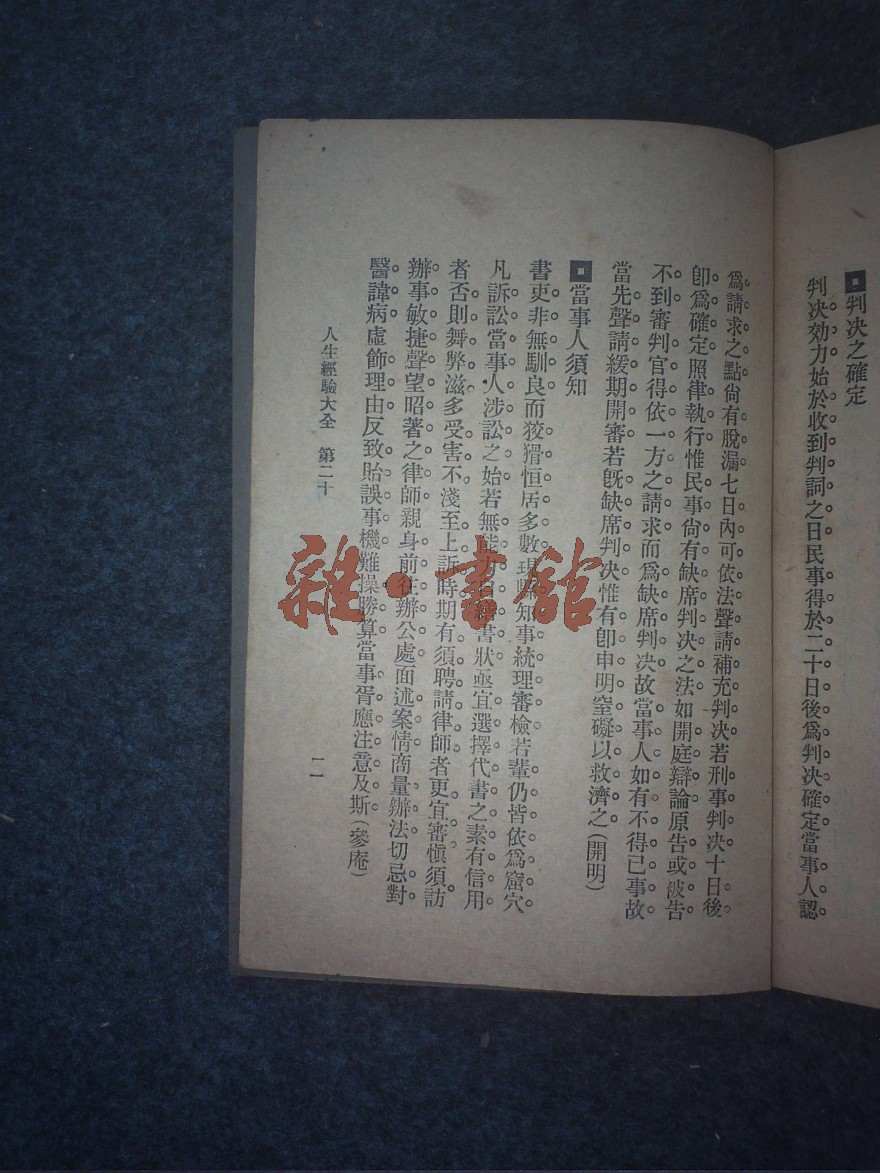 ◘判决之確定
判决効力始於收到判詞之日民事得於二十日後爲判决確定當事人認
爲請求之點尙有脫漏七日內可依法聲請補充判决若刑事判决十日後
卽爲確定照律執行惟民事尙有缺席判决之法如開庭辯論原告或被告
不到審判官得依一方之請求而爲缺席判决故當事人如有不得已事故
當先聲請緩期開審若旣缺席判决惟有卽申明窒礙以救濟之(開明)
◘當事人須知
書吏非無馴良而狡猾恒居多數現縣知事統理審檢若輩仍皆依爲窟穴
凡訴訟當事人涉訟之始若無能力自繕書狀亟宜選擇代書之素有信用
者否則舞弊滋多受害不淺至上訴時期有須聘請律師者更宜審愼須訪
辦事敏捷聲望昭著之律師親身前往辦公處面述案情商量辦法切忌對
醫諱病虛飾理由反致貽誤事機難操勝算當事胥應注意及斯(參庵)
人生經驗大全 第二十
二一
雜·書館